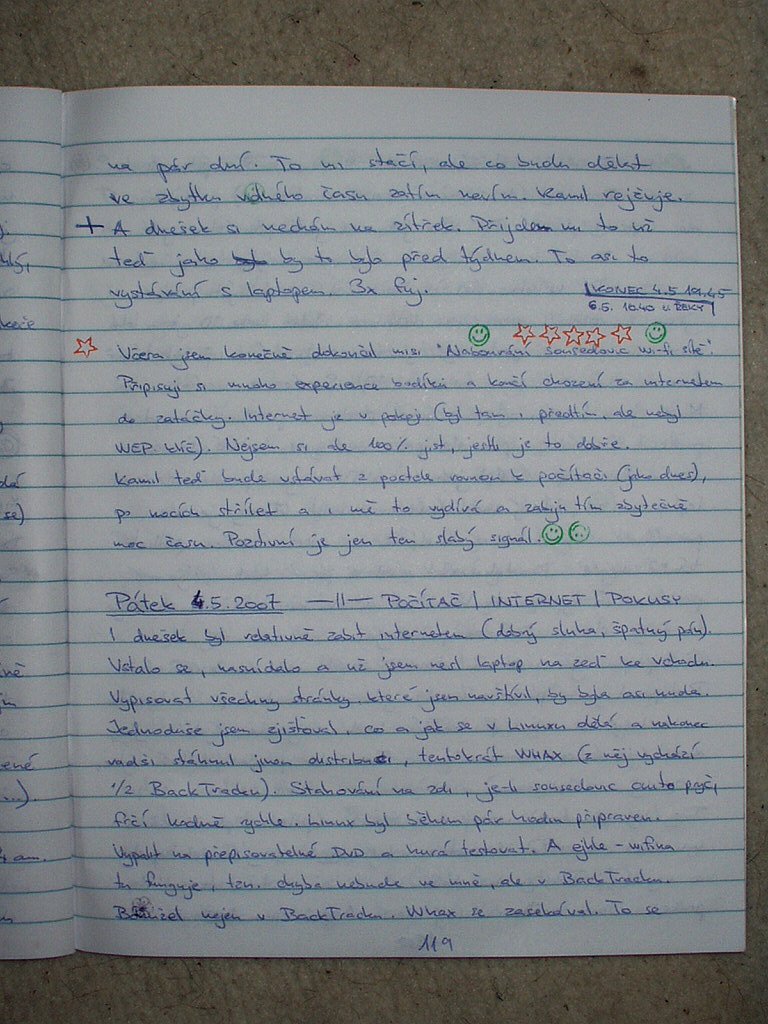 na pár dní. To mi stačí, ale co budu dělat
ve zbytku volného času zatím nevím. Kamil rejžuje.
+ A dnešek si nechám na zítřek. Přijdem mi to už
teď jako by to bylo před týdnem. To asi to
vystávání s laptopem. 3x fuj.
KONEC 4.5 19.45
6.5. 10.40 u ŘEKY
Včera jsem konečně dokončil misi "Nabourání sousedovic wi-fi sítě".
Připisuji si mnoho experience bodíků a končí chození za internetem
do zatáčky. Internet je v pokoji (byl tam i předtím, ale nebyl
WEP. klíč). Nejsem si ale 100% jist, jestli je to dobře.
Kamil teď bude vstávat z postele rovnou k počítači (jako dnes),
po nocích střílet a i mě to vydívá a zabiju tím zbytečně
moc času. Pozitivní je jen ten slabý signál.
Pátek 4.5.2007 —||— POČÍTAČ | INTERNET | POKUSY
I dnešek byl relativně zabit internetem (dobrý sluha, špatný pán).
Vstalo se, nasnídalo a už jsem nesl laptop na zeď ke vchodu.
Vypisovat všechny stránky, které jsem navštívil, by byla asi nuda.
Jednoduše jsem zjišťoval, co a jak se v Linuxu dělá a nakonec
radši stáhnul jinou distribuci, tentokrát WHAX (z něj vychází
1/2 BackTracku). Stahování na zdi, je-li sousedovic auto pryč,
frčí hodně rychle. Linux byl během pár hodin připraven.
Vypálit na přepisovatelné DVD a hurá testovat. A ejhle - wifina
tu funguje, tzn. chyba nebude ve mně, ale v BackTracku.
Bohužel nejen v BackTracku. Whax se zasekával. To se
119